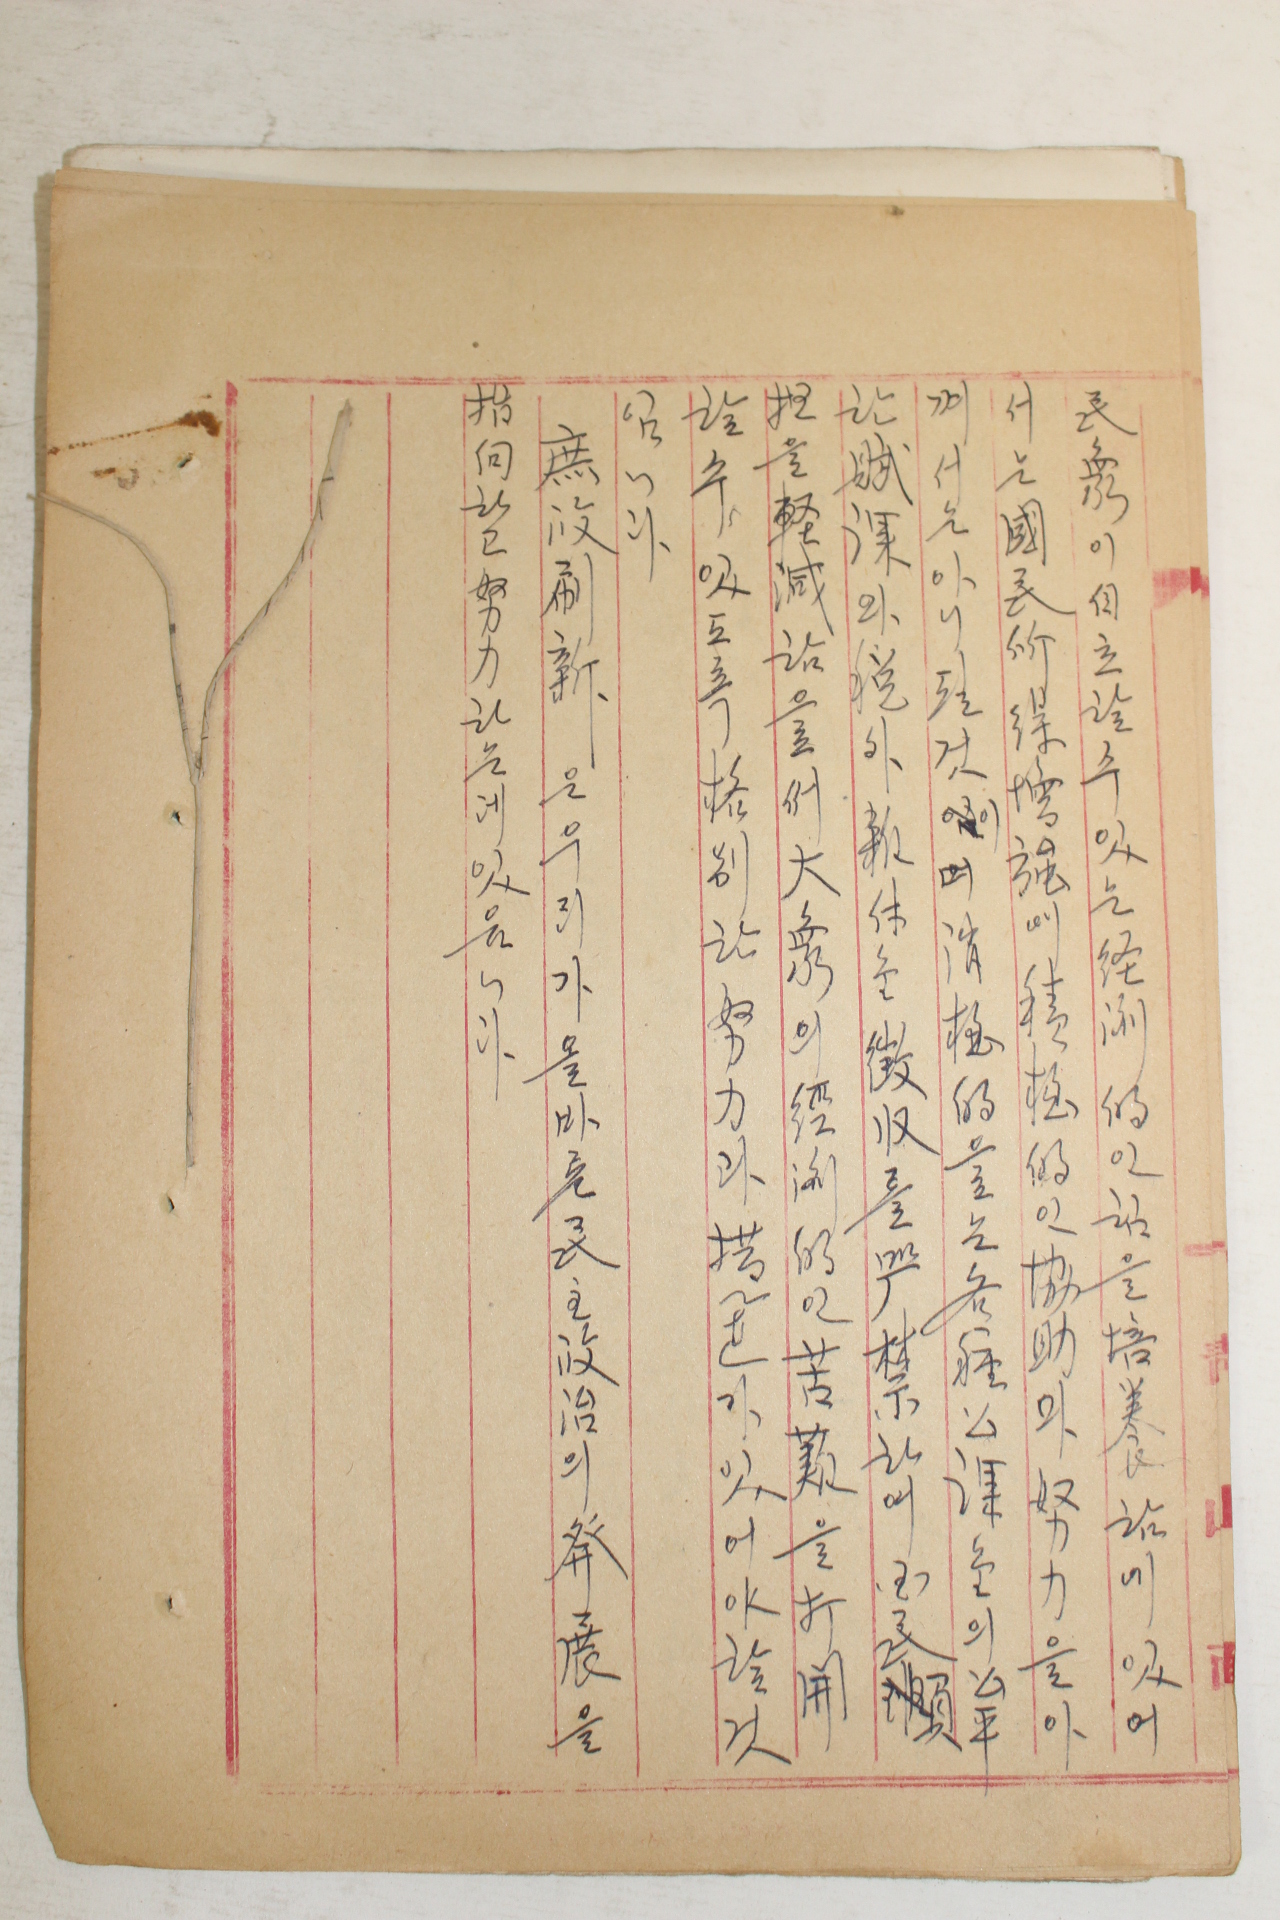 民衆이自立할수있는経済的인힘을培養함에있어
서는國民所得增强에積極的인協助와努力을아
껴서는아니될것이며消極的으로는各種公課金의公平
한賦課와税外雜休金徵收를嚴禁하며国民負
担을軽減함을써大衆의經済的인苦難을打開
할수있도록格別한努力과措置가있어야할것
입니다
庶政刷新은우리가올바른民主政治의發展을
指向하고努力하는데있읍니다